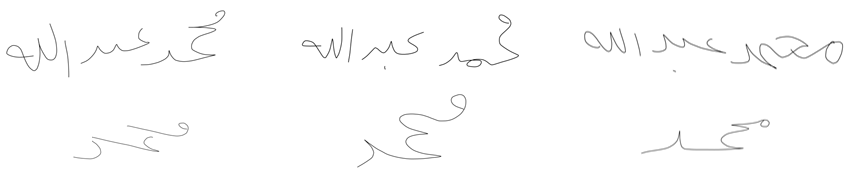 محمد عبد الله محمد عبد الله محمد عبد الله
محمد محمد محمد